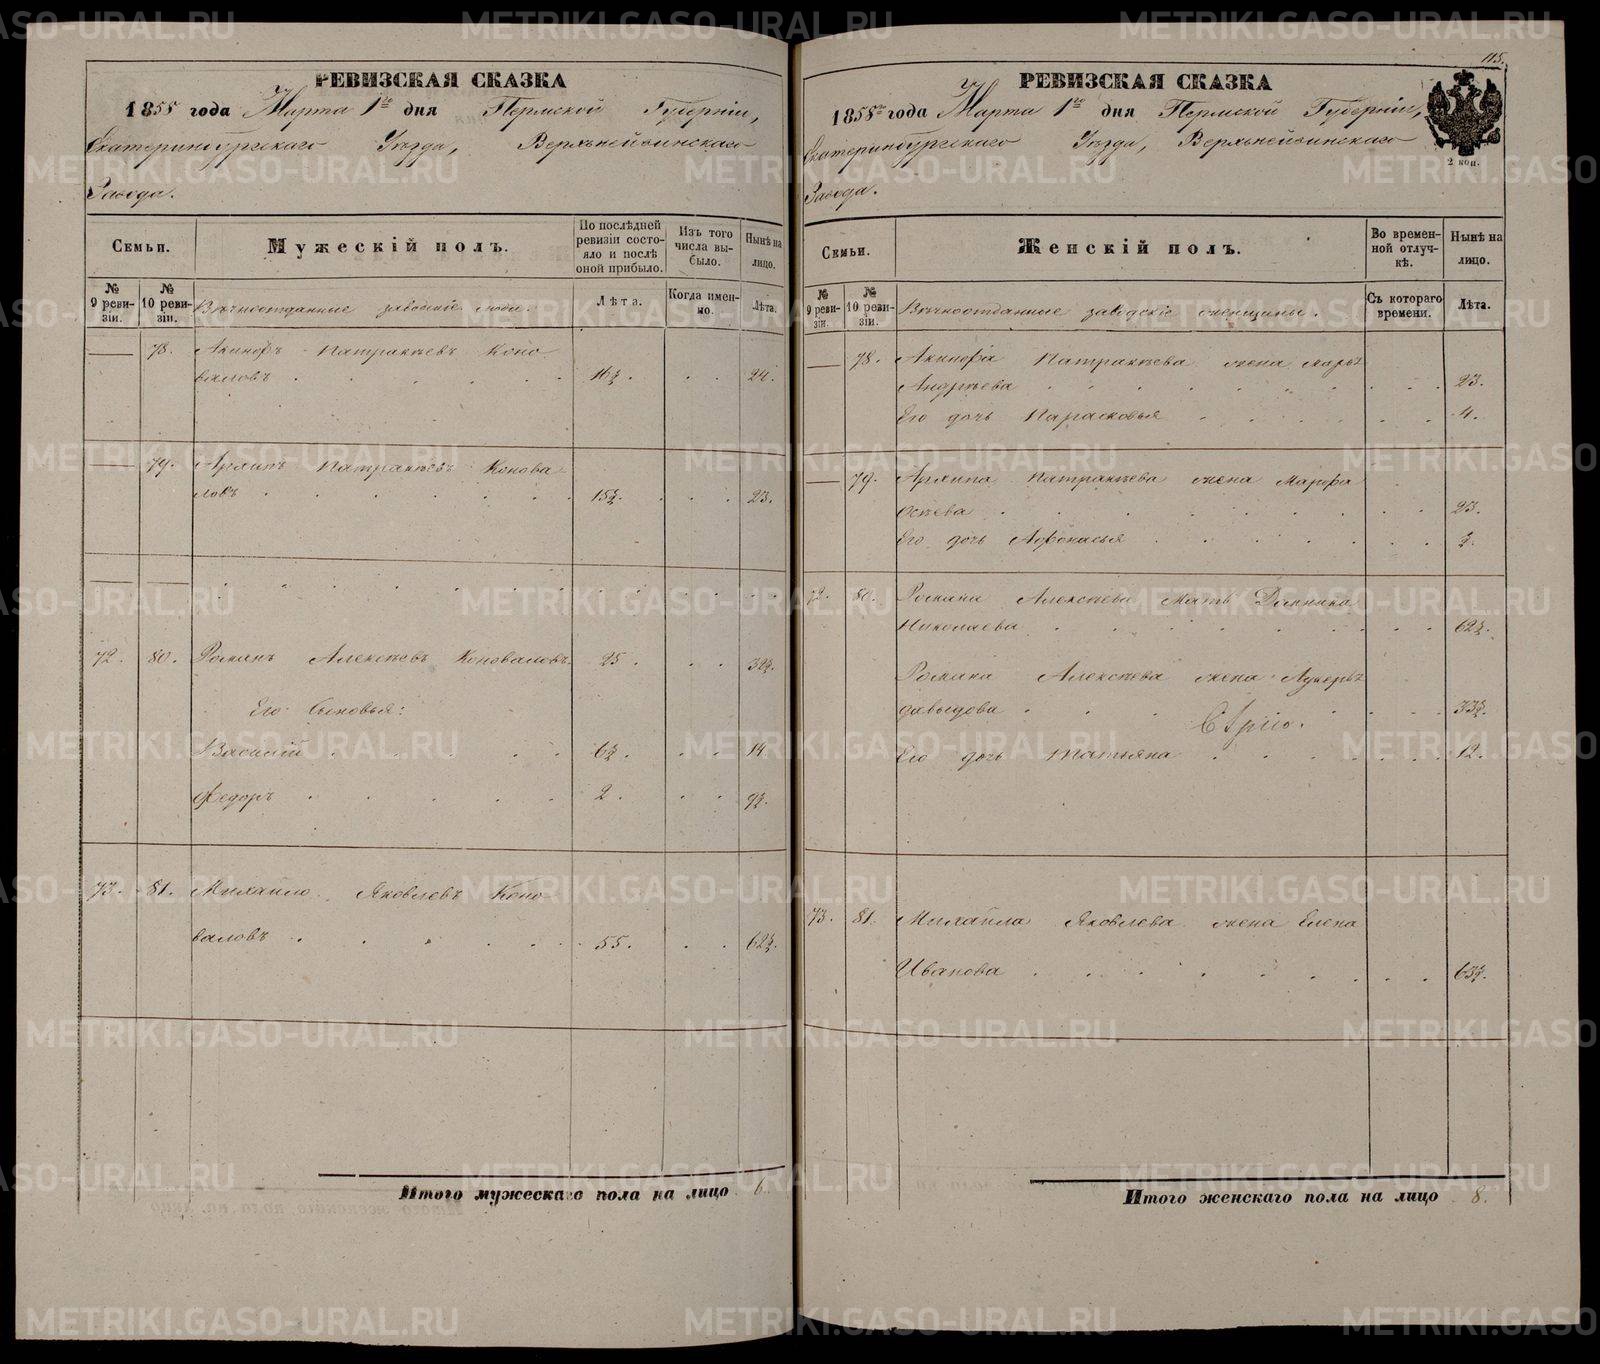 РЕВИЗСКАЯ СКАЗКА
1858 года Марта 1го дня Пермской Губерніи,
Екатеринбургскаго Уѣзда, Верхънейвинскаго
Завода.
Семьи.
Мужескій полъ.
По послѣдней ревизіи состояло и послѣ оной прибыло.
Изъ того числа выбыло.
Нынѣ на лицо.
№ 9 ревизіи.
№ 10 ревизіи.
Вѣчноотданные заводскіе люди.
Лѣта.
Когда именно.
Лѣта.
78. Акинфъ Патракѣевъ Коно
валовъ . . . . . 16½ . . . 24.
79. Архипъ Патракѣевъ Конова
ловъ . . . . . 15½ . . . 23.
72. 80. Романъ Алексѣевъ Коноваловъ 25 . . . 32½.
Его Сыновья:
Василій . . . . 6½ . . . 14
Федоръ . . . . . 2 . . . 9½.
73. 81. Михайло Яковлевъ Коно
валовъ . . . . . 55 . . . 62½.
Итого мужескаго пола на лицо 6
115.
РЕВИЗСКАЯ СКАЗКА
1858го года Марта 1го дня Пермской Губерніи,
Екатеринбургскаго Уѣзда, Верхънейвинскаго
Завода.
2 коп.
Семьи.
Женскій полъ.
Во временной отлучкѣ.
Нынѣ на лицо.
№ 9 ревизіи.
№ 10 ревизіи.
Вѣчноотданные заводскіе женщины.
Съ котораго времени.
Лѣта.
78. Акинфія Патракѣева жена Марья
Андрѣева . . . . . 23.
Его дочь Парасковья . . . . 4.
79. Архипа Патракѣева жена Марфа
. . . . . 23.
Его дочь Афонасья . . . . ½.
72. 80. Романа Алексѣева Мать Домника
Николаева . . . . . 62½.
Романа Алексѣева жена Лукерья
Давыдова . . . . . 33½.
Его дочь Татьяна . . . . 12.
73. 81. Михайла Яковлева жена Елена
Иванова . . . . . 63½.
Итого женскаго пола на лицо 8.
METRIKI.GASO-URAL.RU